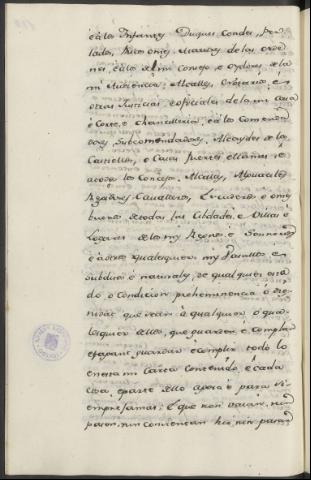 é á los Infantes, Duques, Condes, Per-
lados, Ricos omes, Maestres de las orde-
nes, é á los del mi Consejo, e oydores de la
mi Audiencia, Alcalles, é Notarios, é
otras Justicias, é oficiales de la mi casa
é Corte, é Chancilleria, é á los Comenda-
dores, Subcomendadores, Alcaydes de los
Castiellos, é Casas fuertes é llanas, é
á todos los Concejos, Alcalles, Alguaciles
Regidores, Cavalleros, Escuderos, é omes
buenos de todas las Cibdades, é Villas é
Logares de los mis Regnos é Sennorios
é á otros qualesquier mis Vasallos, é
subditos é naturales, de qualquier esta-
do, o Condicion, preheminencia, ó dig-
nidat que sean á qualquier, ó qua-
lesquier dellos, que guarden é complan
é fagan guardar é complir todo lo
en esta mi Carta contenido, é cada
cosa, é parte dello agora é para si-
empre jamas: E que non vayan, nin
pasen, nin consientan hir, nin pasar